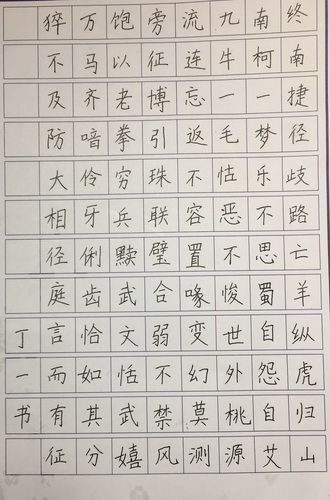 终南捷径歧路亡羊纵虎归山
南柯一梦乐不思蜀自怨自艾
九牛一毛怙恶不悛世外桃源
流连忘返不容置喙变幻莫测
旁征博引珠联璧合弱不禁风
饱以老拳穷兵黩武文恬武嬉
万马齐喑伶牙俐齿恰如其分
猝不及防大相径庭言而有征
丁一书